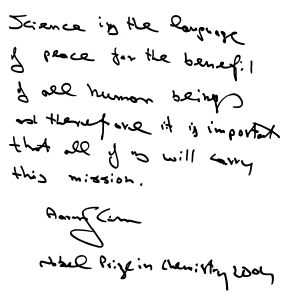 Science is the language
of peace for the benefit
of all human beings
and therefore it is important
that all of us will carry
this mission.
Nobel Prize in Chemistry 2004